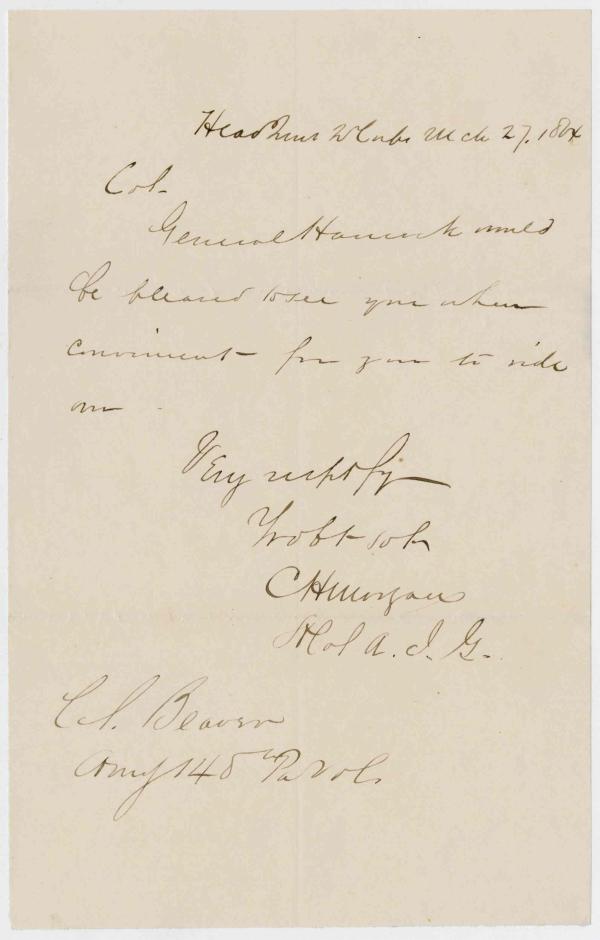 HeadQurs 2d Corps Mch 27, 1864
Col.
General Hancock would
be pleased to see you when
convinient for you to ride
over
Very resptfy
Yr obt svt
CHMorgan
Lt Col A. I. G.
Col. Beaver
Comg 148th Pa Vols